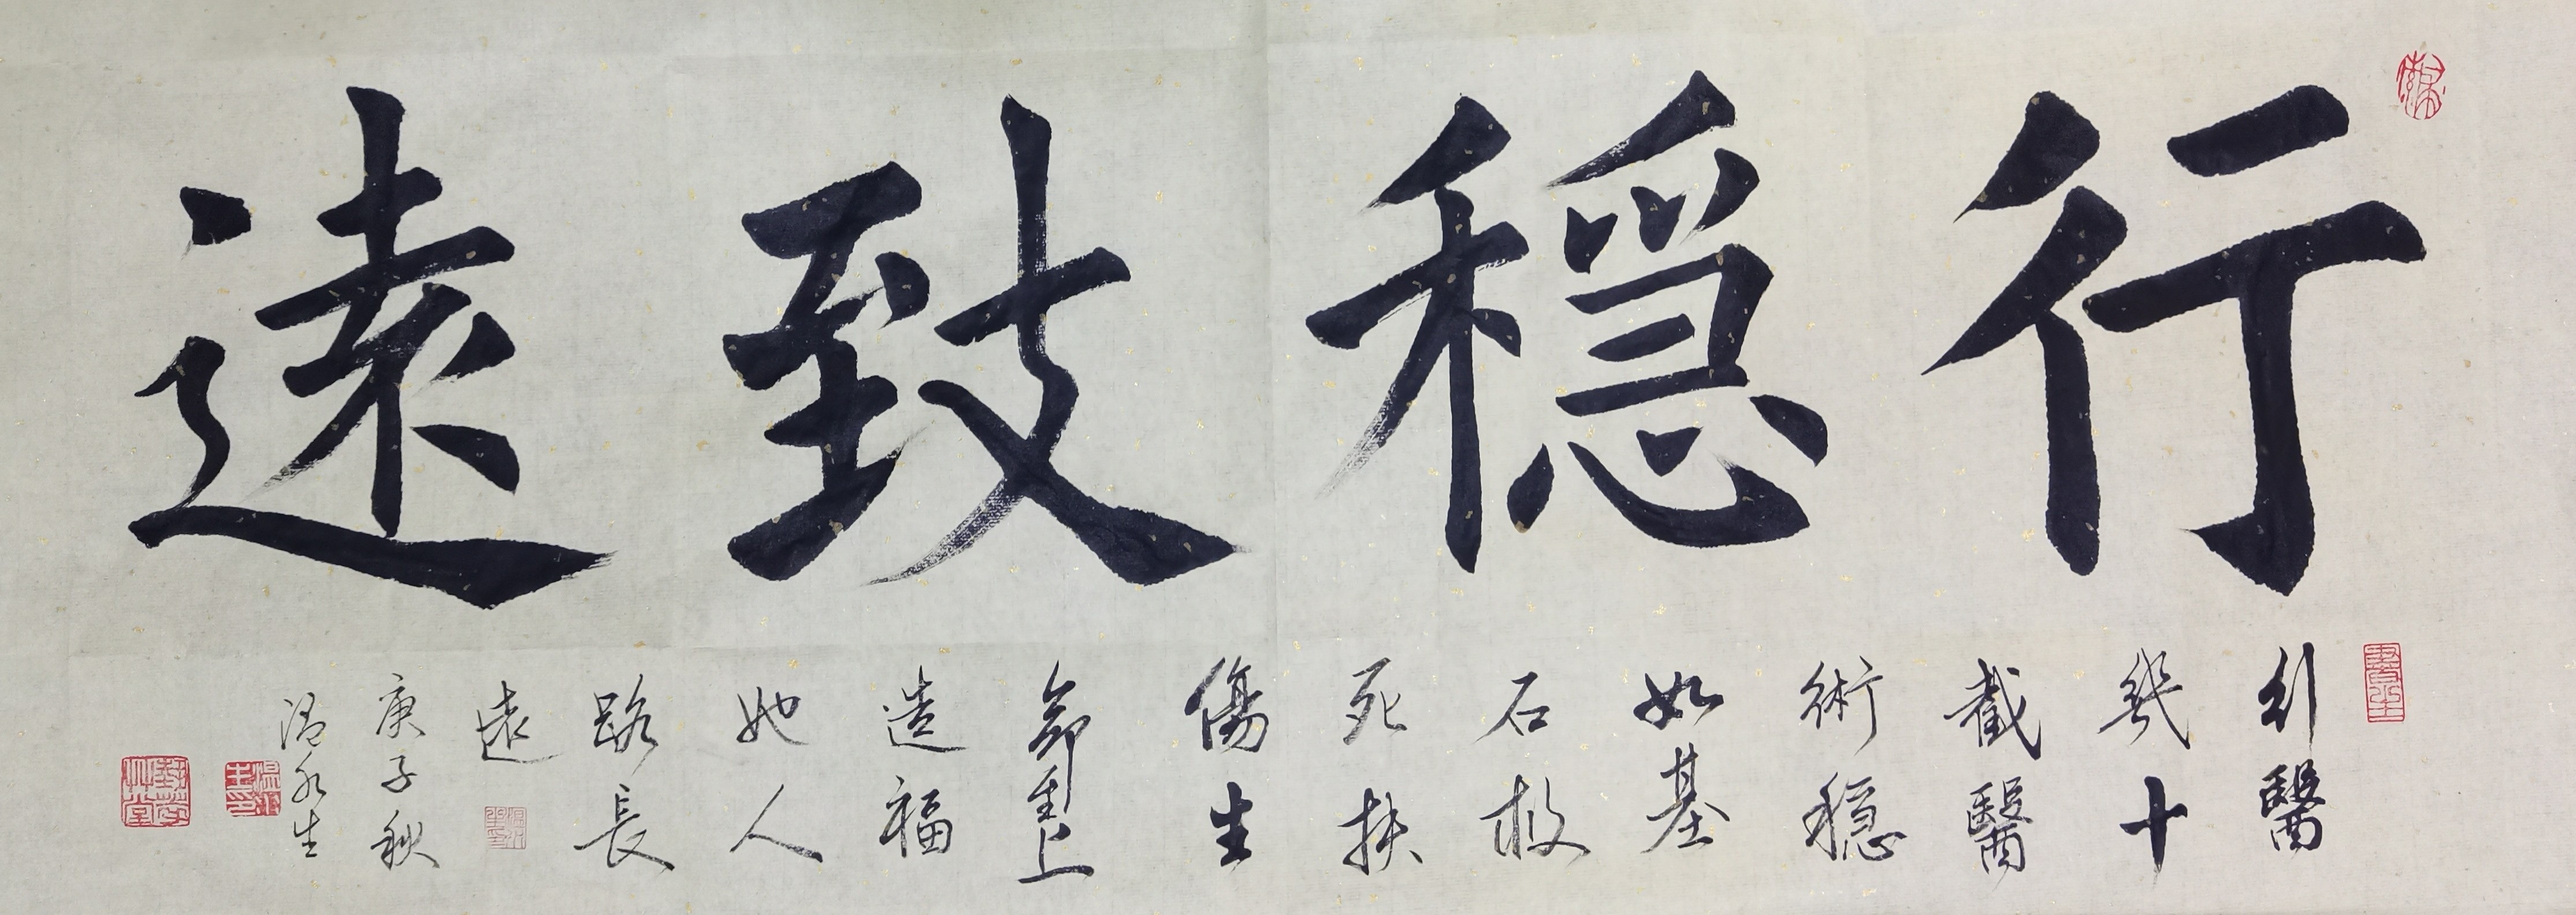 行穩致遠
行醫
幾十
醫
術穩
如基
石救
死扶
傷生
命至上
造福
她人
路長
遠
庚子秋
温永生
温永生印